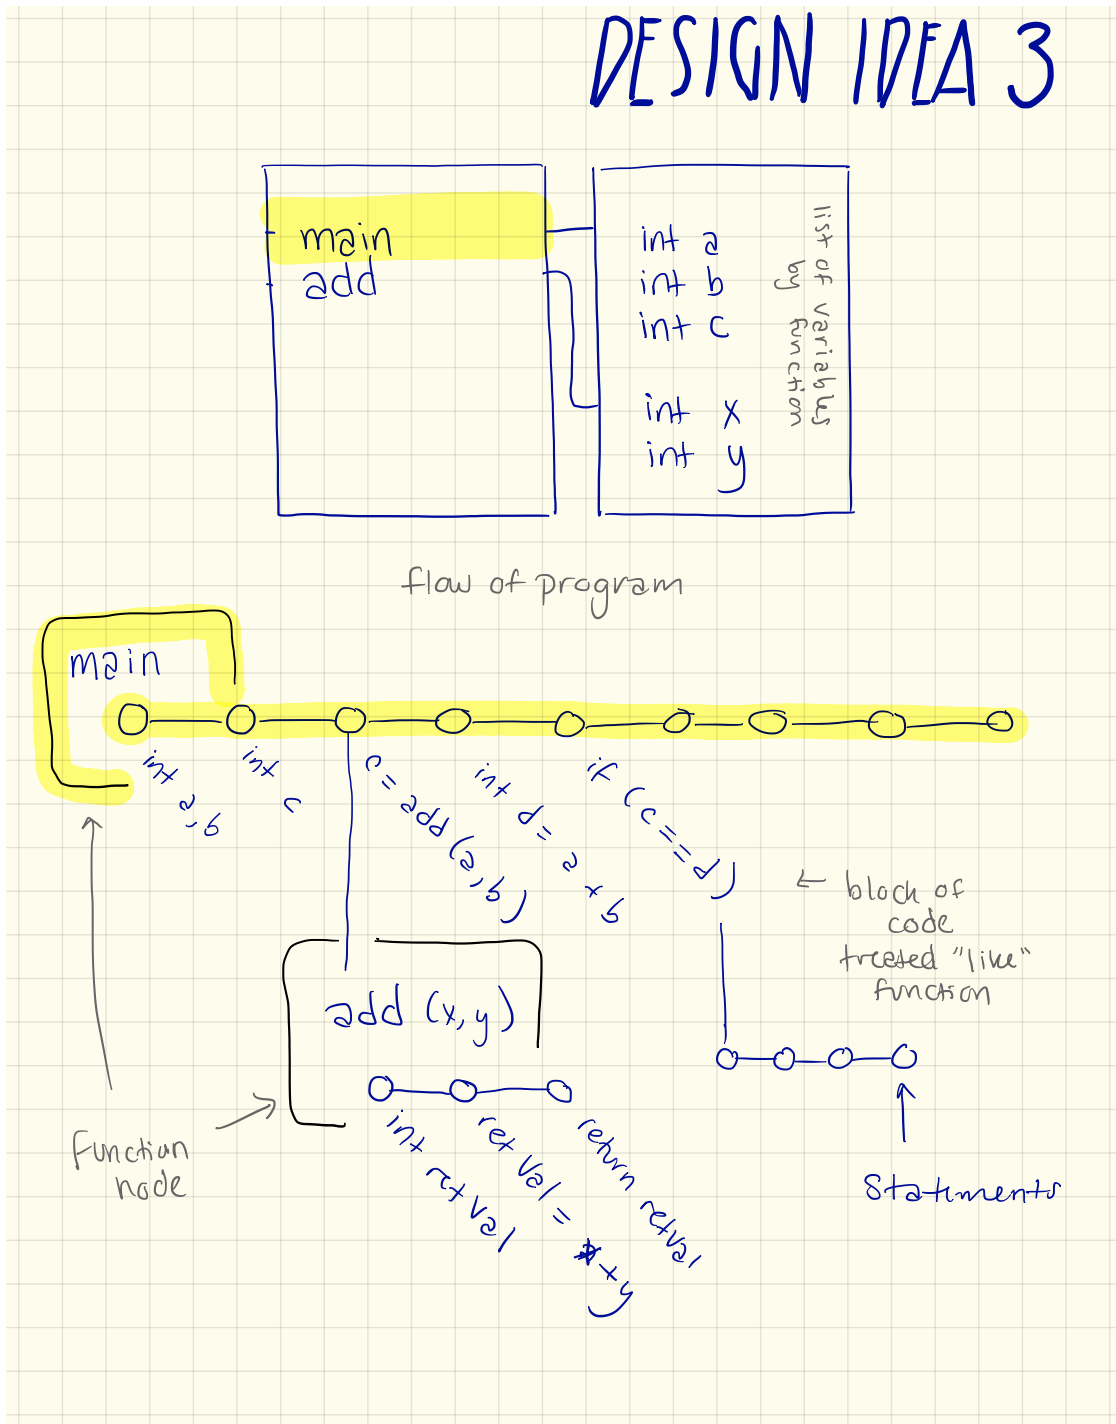 DESIGN IDEA 3
main
add
int a
int b
int c
int x
int y
list of variables
by function
flow of program
main
int a,b
int c
c = add (a,b)
int d = a x b
if (c == d)
← block of
code
treated "like"
function
add (x,y)
int retVal
retVal = + y
return retVal
Function
node
Statements